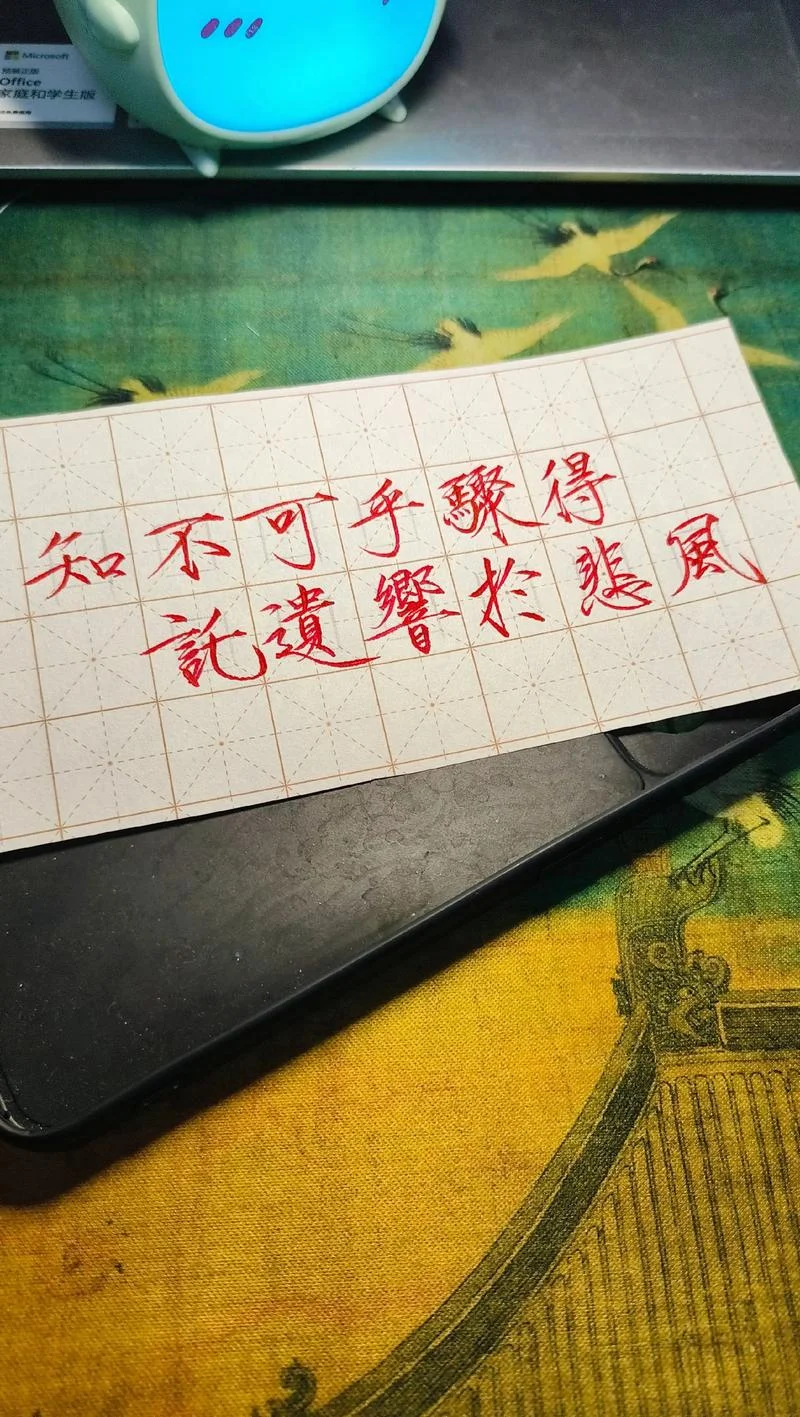 Microsoft
预装正版
Office
家庭和学生版
知不可乎驟得
託遺響於悲風